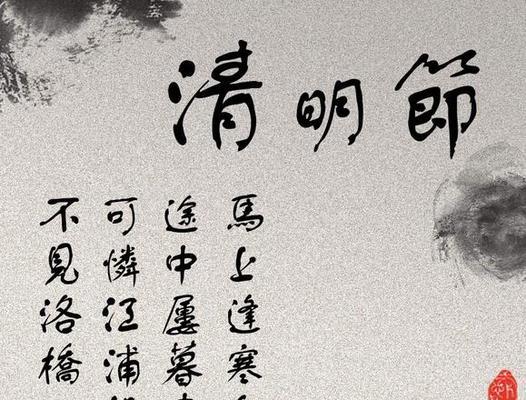 清明節
馬上逢寒
途中屢暮
可憐江浦
不見洛橋